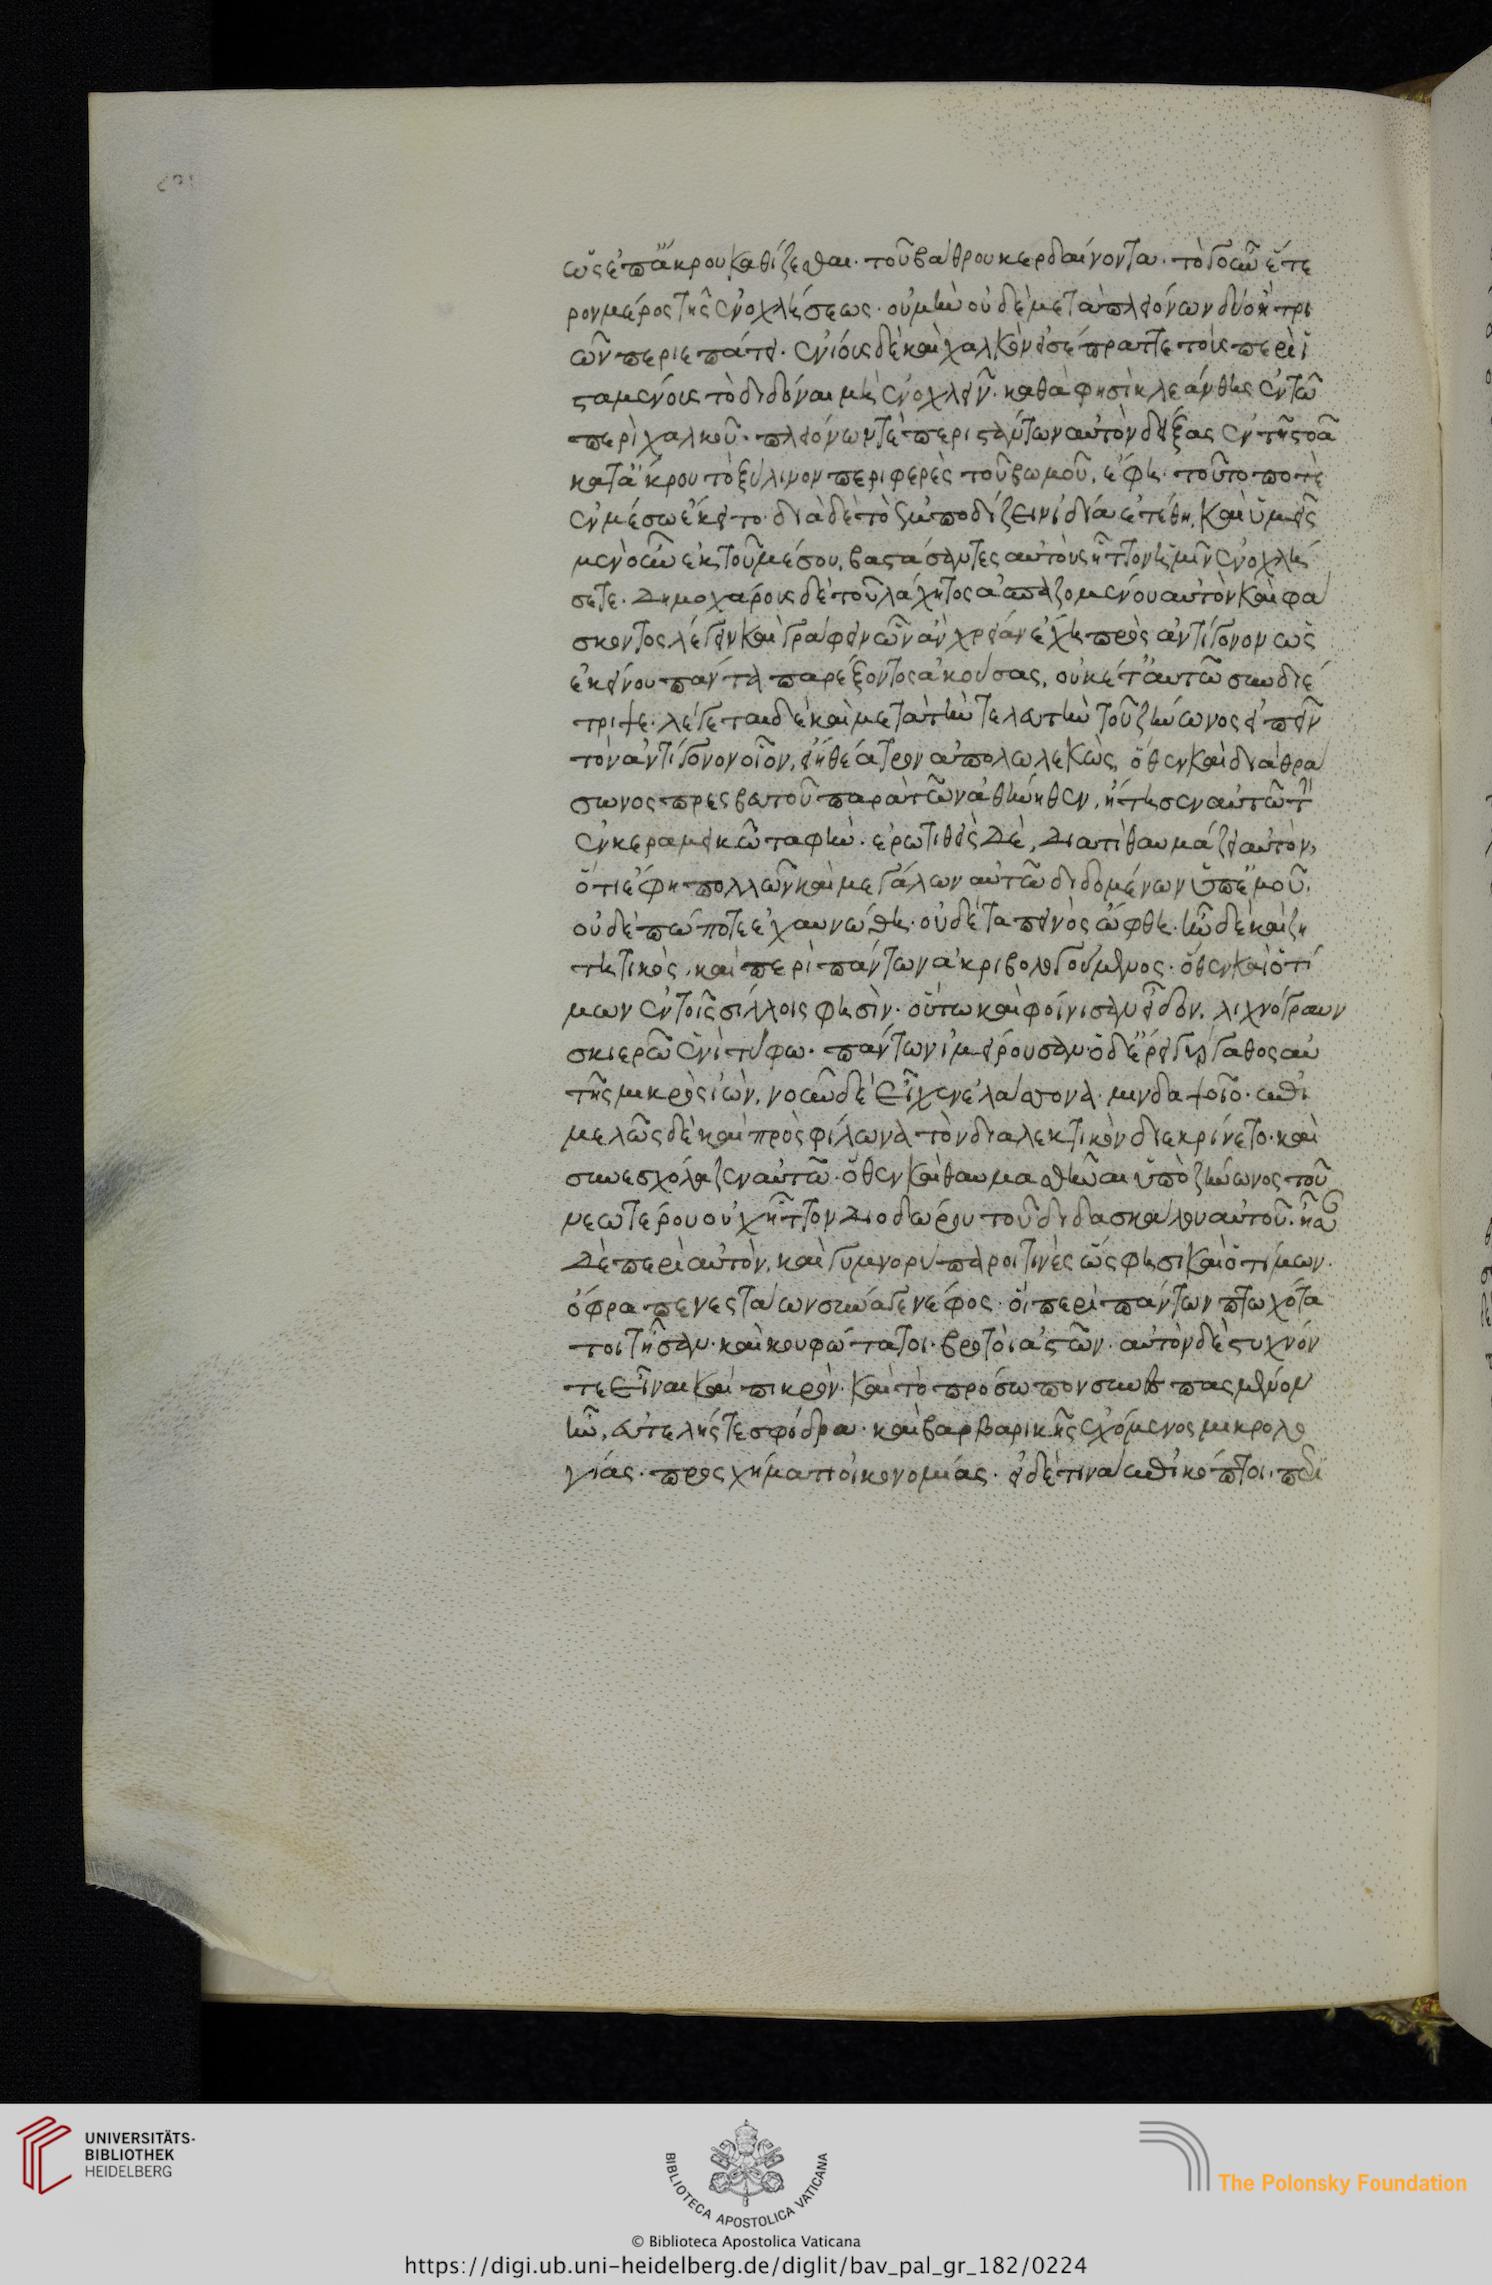 ὡς ἐπ' ἄκρου καθίζεσθαι τοῦ βάθρου κερδαίνοντα· τὸ γοῦν ἕτε
ρον μέρος τῆς ἐνοχλήσεως· οὐ μὴν οὐδὲ μετὰ πλειόνων δύο ἢ τρι
ῶν περιεπάτει· ἐνίοις δὲ καὶ χαλκὸν εἰσέπραττε τοῖς περιϊ
σταμένοις τὸ διδόναι μὴ ἐνοχλεῖν· καθά φησι κλεάνθης ἐν τῶ
περὶ χαλκοῦ· πλειόνων τε περιστάντων αὐτὸν δείξας ἐν τῆ στοᾶ
κατ' ἄκρου τὸ ξύλινον περιφερὲς τοῦ βωμοῦ, ἔφη· τοῦτό ποτε
ἐν μέσω ἔκειτο· διὰ δὲ τὸ ἐμποδίζειν ἰδία ἐτέθη, καὶ ὑμεῖς
μὲν οὖν ἐκ τοῦ μέσου, βαστάσαντες αὐτοὺς ἧττον ἡμῖν ἐνοχλή
σετε. Δημοχάρους δὲ τοῦ λάχητος ἀσπαζομένου αὐτὸν καὶ φά
σκοντος λέγειν καὶ γράφειν ὧν ἂν χρείαν ἔχη πρὸς ἀντίγονον ὡς
ἐκείνου πάντα παρέξοντος ἀκούσας, οὐκέτ' αὐτῶ συνδιέ
τριψε. λέγεται δὲ καὶ μετὰ τὴν τελευτὴν τοῦ ζήνωνος εἰπεῖν
τὸν ἀντίγονον οἷον, εἴη θέατρον ἀπολωλεκώς, ὅθεν καὶ διὰ θρά
σωνος πρεσβευτοῦ παρὰ τῶν ἀθήνηθεν, ἤτησεν αὐτῶ τὴν
ἐν κεραμεικῶ ταφήν. ἐρωτηθεὶς Δὲ, Διατί θαυμάζει αὐτὸν,
ὅτι ἔφη πολλῶν καὶ μεγάλων αὐτῶ διδομένων ὑπ' ἐμοῦ.
οὐδεπώποτε ἐχαυνώθη· οὐδὲ ταπεινὸς ὤφθη. ἦν δὲ καὶ ζη
τητικὸς, καὶ περὶ πάντων ἀκριβολογούμενος· ὅθεν καὶ ὁ τί
μων ἐν τοῖς σίλλοις φησὶν· οὕτω καὶ φοίνισσαν εἶδον, λιχνόγραυν
σκιερῶ ἐνὶ τύφω· πάντων ἱμείρουσαν·
τῆς μικρὸς ἰὼν, νοῦν δὲ εἶχεν ἐλάσσονα
μελῶς δὲ καὶ πρὸς φίλωνα τὸν διαλεκτικὸν διεκρίνετο· καὶ
συνεσχόλαζεν αὐτῶ· ὅθεν καὶ θαυμασθῆναι ὑπὸ ζήνωνος τοῦ
νεωτέρου οὐχ ἧττον Διοδώρου τοῦ διδασκάλου αὐτοῦ. ἦσαν
Δὲ περὶ αὐτὸν, καὶ γυμνορύπαροί τινες ὥς φησι καὶ ὁ τίμων.
ὄφρα πενεστάων σύναγε νέφος· οἳ περὶ πάντων πτωχότα
τοί τ' ἦσαν· καὶ κουφότατοι βροτοὶ ἀστῶν. αὐτὸν δὲ στυχνόν
τε εἶναι καὶ πικρὸν· καὶ τὸ πρόσωπον συνεσπασμένον
ἦν, εὐτελής τε σφόδρα· καὶ βαρβαρικῆς ἐχόμενος μικρολο
γίας· προσχήματι οἰκονομίας· εἰ δέ τινα ἐπικόπτοι,
UNIVERSITÄTS-
BIBLIOTHEK
HEIDELBERG
BIBLIOTECA APOSTOLICA VATICANA
© Biblioteca Apostolica Vaticana
The Polonsky Foundation
https://digi.ub.uni-heidelberg.de/diglit/bav_pal_gr_182/0224